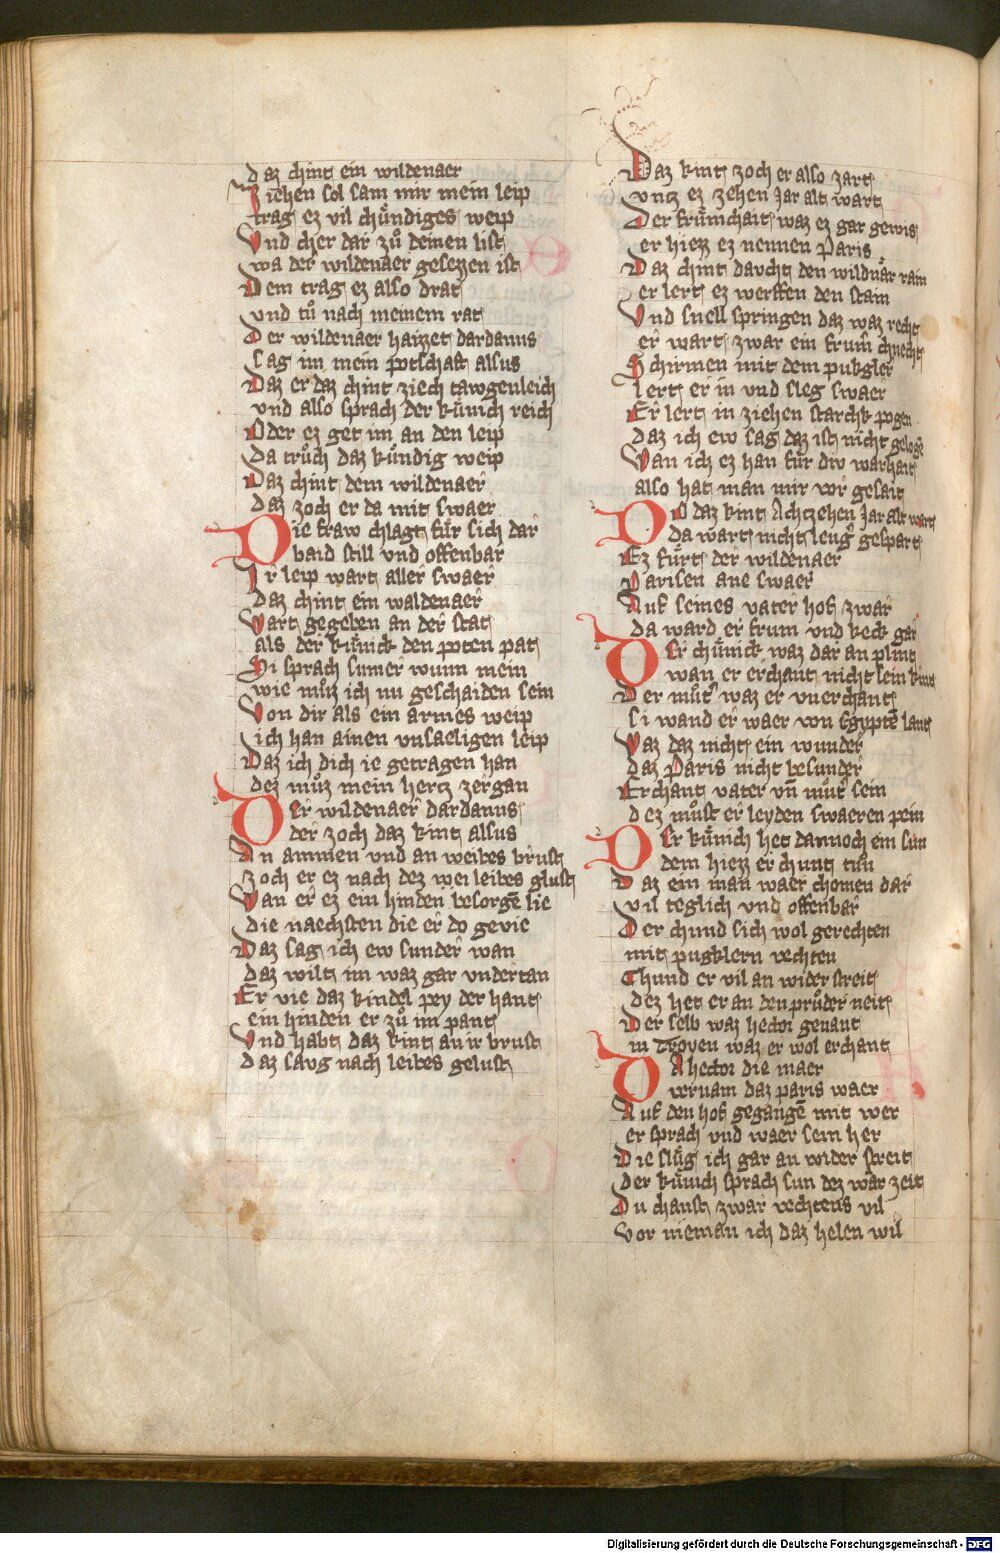 daz chint ein wildenaer
Ziehen sol sam mir mein leip
trag ez vil chu᷄ndiges weip
Vnd cher dar zuͦ deinen list
wa der wildenaer gesezzen ist
Dem trag ez also drat
vnd tuͦ nach meinem rat
Der wildenaer haizzet dardanus
sag im mein potschaft alsus
Daz er daz chint ziech tawgenleich
vnd also sprach der kuͤnich reich
Oder ez get im an den leip
da truͦch daz kuͤndig weip
Daz chint dem wildenaer
daz zoch er da mit swaer
Die fraw chlagt fuͤr sich dar
baid still vnd offenbar
Ir leip wart aller swaer
daz chint ein waldenaer
Wart gegeben an der stat
als der kuͤnick den poten pat
Si sprach sumer wunn mein
wie muͦz ich nu geschaiden sein
Von dir als ein armes weip
ich han ainen vnsaeligen leip
Daz ich dich ie getragen han
dez muͦz mein hertz zergan
Der wildenaer dardanus
der zoch daz kint alsus
An ammen vnd an weibes brust
zoch er ez nach dez wei leibes glust
Wan er ez ein hinden besorgē lie
die naechsten die er do gevie
Daz sag ich ew sunder wan
daz wilt im waz gar vndertan
Er vie daz kindel pey der hant
ein hinden er zuͦ im pant
Vnd habt daz kint an ir brust
daz saug nach leibes gelust
Daz kint zoch er also zart
vntz ez zehen Jar alt wart
Der fruͤmchait waz ez gar gewis
er hiezz ez nennen Paris
Daz chint davcht den wildnaͤr rain
er lert ez werffen den stain
Vnd snell springen daz waz recht
er wart zwar ein frum chnecht
Schirmen mit dem pukgler
lert er in vnd sleg swaer
Er lert in ziehen starchk pogen
daz ich ew sag daz ist nicht geloge
Wan ich ez han fuͤr div warhait
also hat man mir vor gesait
Do daz kint Achtzehen Jar alt wart
da wart nicht leng gespart
Ez fuͤrt der wildenaer
Parisen ane swaer
Auf seines vater hof zwar
da ward er frum vnd keck gar
Der chuͤnick waz dar an plint
wan er erchant nicht sein kint
Der muͦt waz er vnerchant
si wand er waer von Egyptē lant
Waz daz nicht ein wunder
daz Paris nicht besunder
Erchant vater vn̄ muͦt sein
dez muͦst er leyden swaeren pein
Der kuͤnich het dannoch ein sun
dem hiezz er chunt tuͦn
Daz ein man waer chomen dar
vil teglich vnd offenbar
Der chund sich wol gerechten
mit pugklern vechten
Chund er vil an wider streit
dez het er an den pruͦder neit
Der selb waz hector genant
in Troyen waz er wol erchant
Da hector die maer
vernam daz paris waer
Auf den hof gegangē mit wer
er sprach vnd waer sein her
Die sluͤg ich gar an wider streit
der kuͤnich sprach sun dez war zeit
Du chanst zwar vechtens vil
vor nieman ich daz helen wil
Digitalisierung gefördert durch die Deutsche Forschungsgemeinschaft - DFG